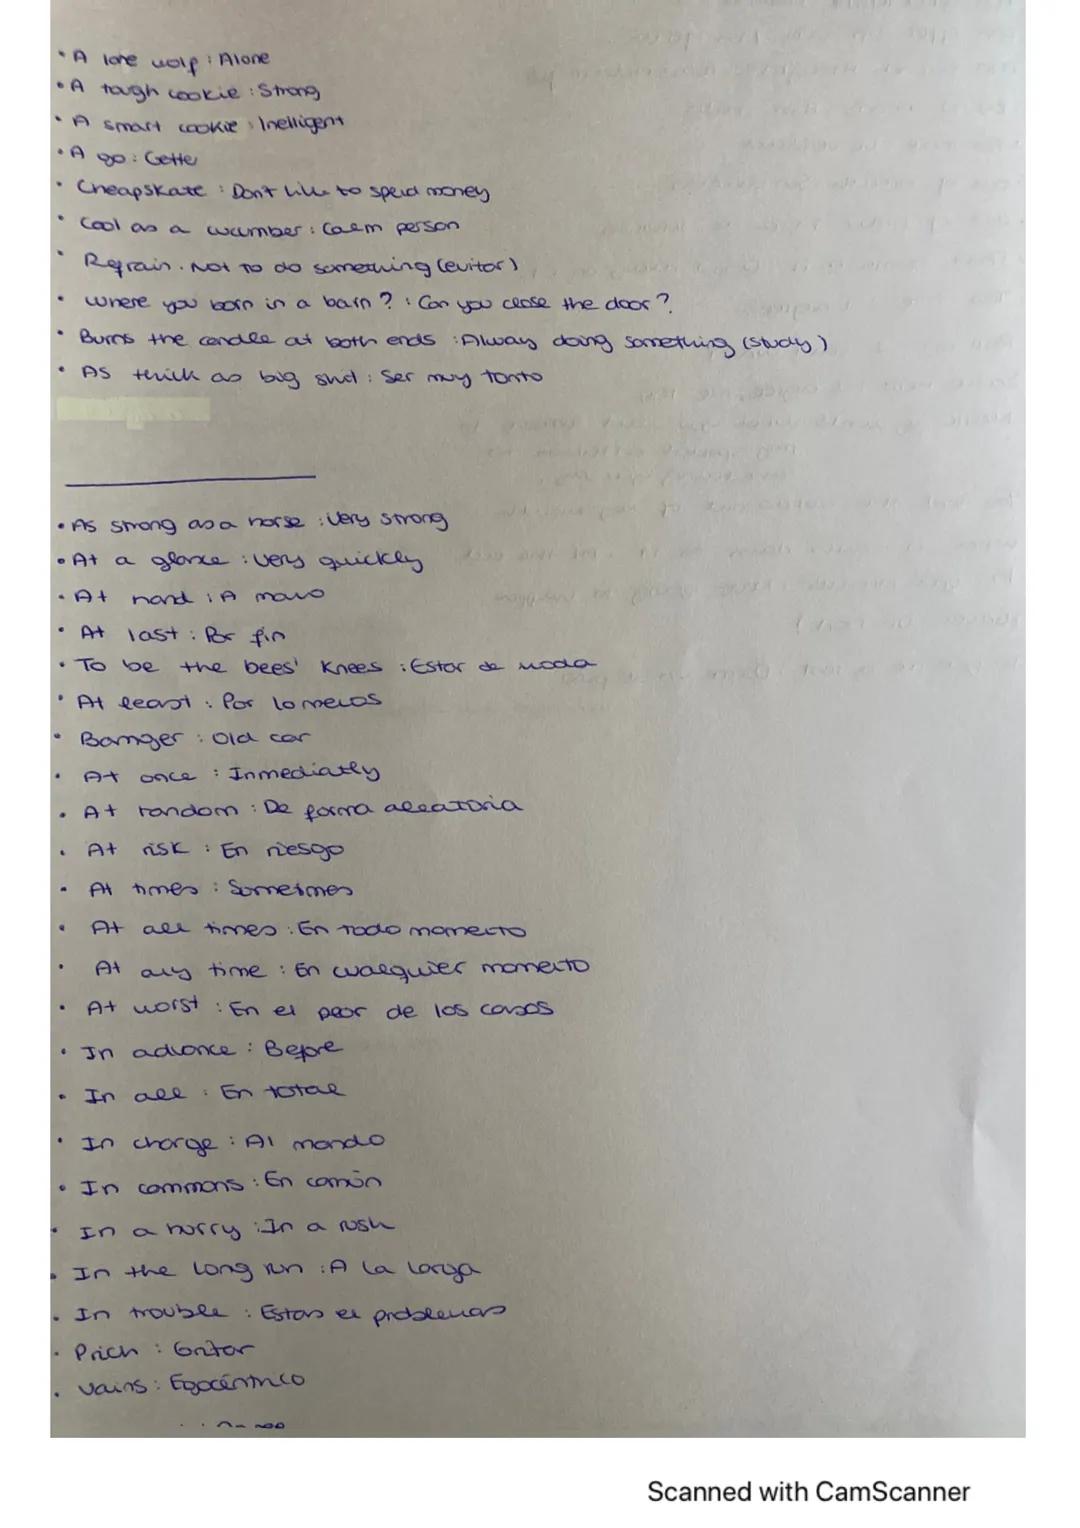 • A lone wolf : Alone
• A tough cookie : Strong
• A smart cookie : Inelligent
• A go : Getter
• Cheapskate : Don't like to spend money
• Cool as a cucumber : Calm person
• Refrain . Not to do something (evitar)
• Where you born in a barn ? : Can you close the door ?
• Burns the candle at both ends : Alway doing something (study)
• As thick as big shit : Ser muy tonto
• As strong as a horse : Very strong
• At a glance : Very quickly
• At hand : A mano
• At last : Por fin
• To be the bees' Knees : Estar de moda
• At least : Por lo menos
• Bamger : Old car
• At once : Inmediatly
• At random : De forma aleatoria
• At risk : En riesgo
• At times : Sometimes
• At all times : En todo momento
• At any time : En cualquier momento
• At worst : En el peor de los casos
• In advance : Before
• In all : En total
• In charge : Al mando
• In commons : En común
• In a hurry : In a rush
• In the long run : A la larga
• In trouble : Estar en problemas
• Prich : Gritar
• Vains : Egocéntrico
Scanned with CamScanner